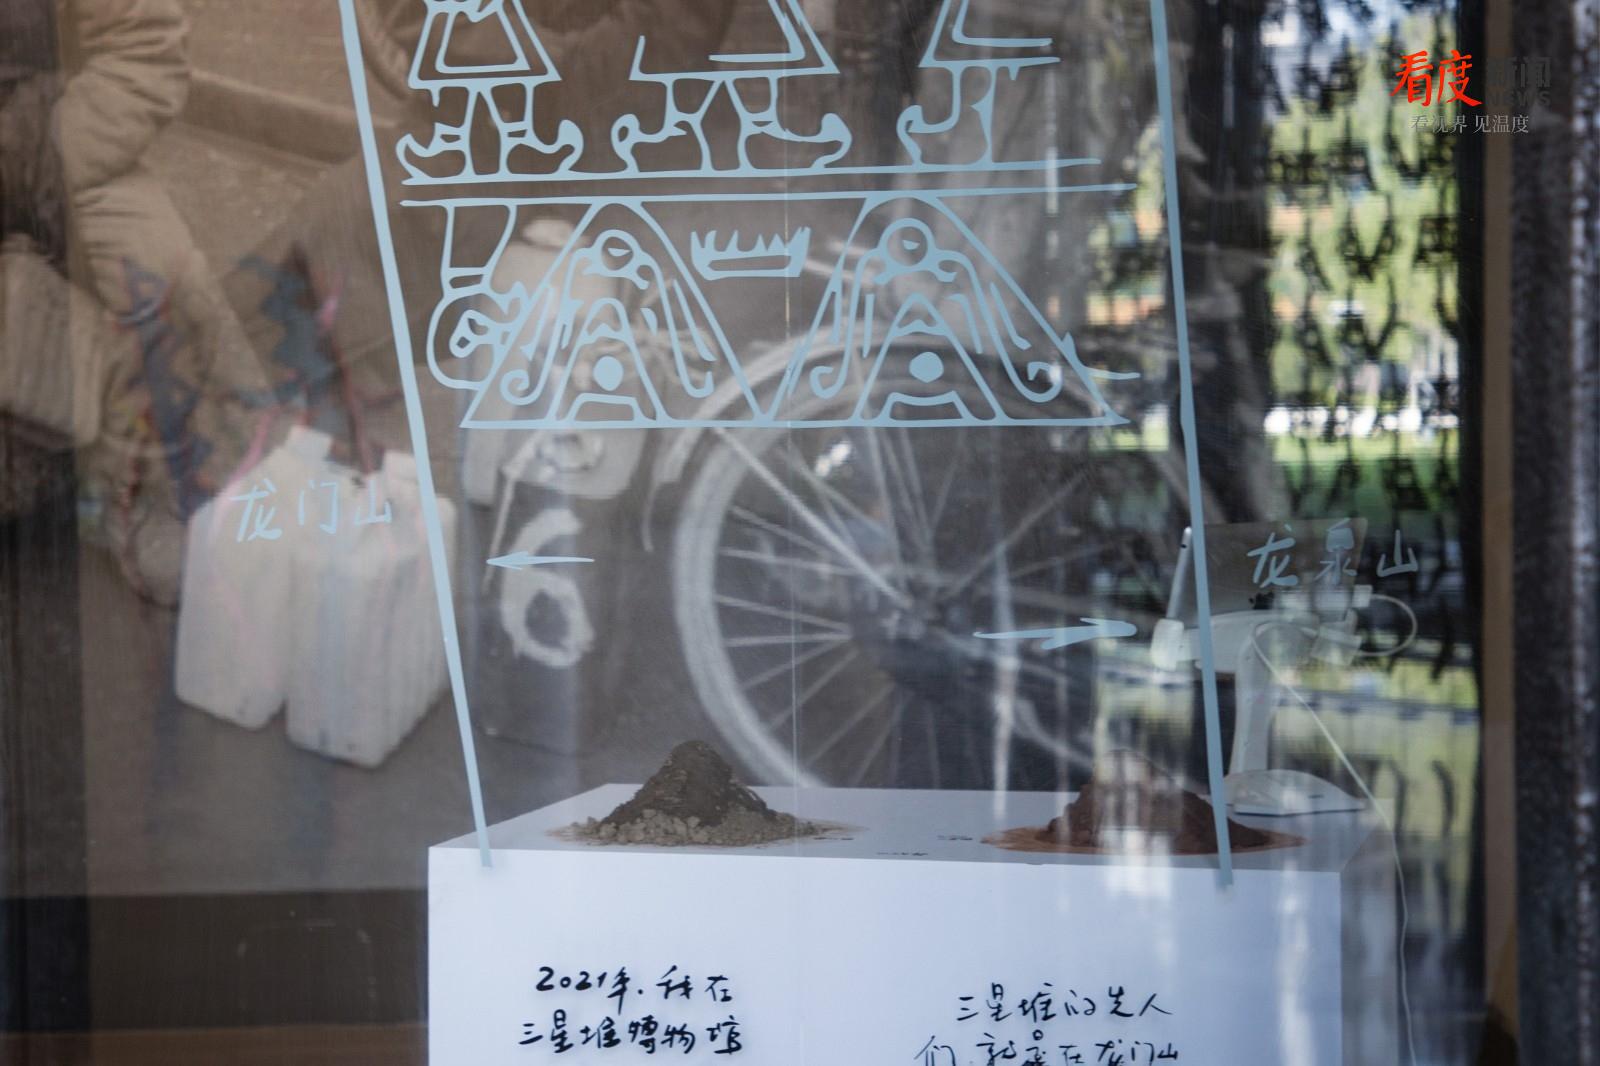 看度新闻
NEWS
看视界 见温度
龙门山
龙泉山
2021年.我在
三星堆博物馆
三星堆的先人
们.就是在龙门山